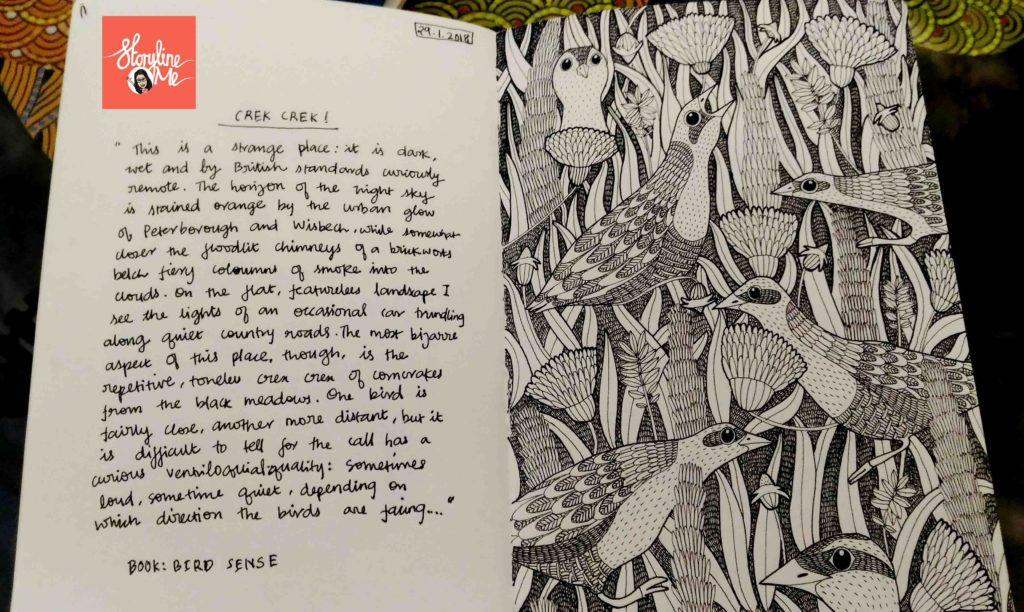 Storyline
Me
29.1.2018
CREK CREK!
" This is a strange place: it is dark,
wet and by British standards curiously
remote. The horizon of the night sky
is stained orange by the urban glow
of Peterborough and Wisbech, while somewhat
closer the floodlit chimneys of a brickworks
belch fiery coloumns of smoke into the
clouds. On the flat, featureless landscape I
see the lights of an occasional car trundling
along quiet country roads. The most bizarre
aspect of this place, though, is the
repetitive, toneless crex crex of corncrakes
from the black meadows. One bird is
fairly close, another more distant, but it
is difficult to tell for the call has a
curious ventriloquial quality: sometimes
loud, sometime quiet, depending on
which direction the birds are facing..."
BOOK: BIRD SENSE